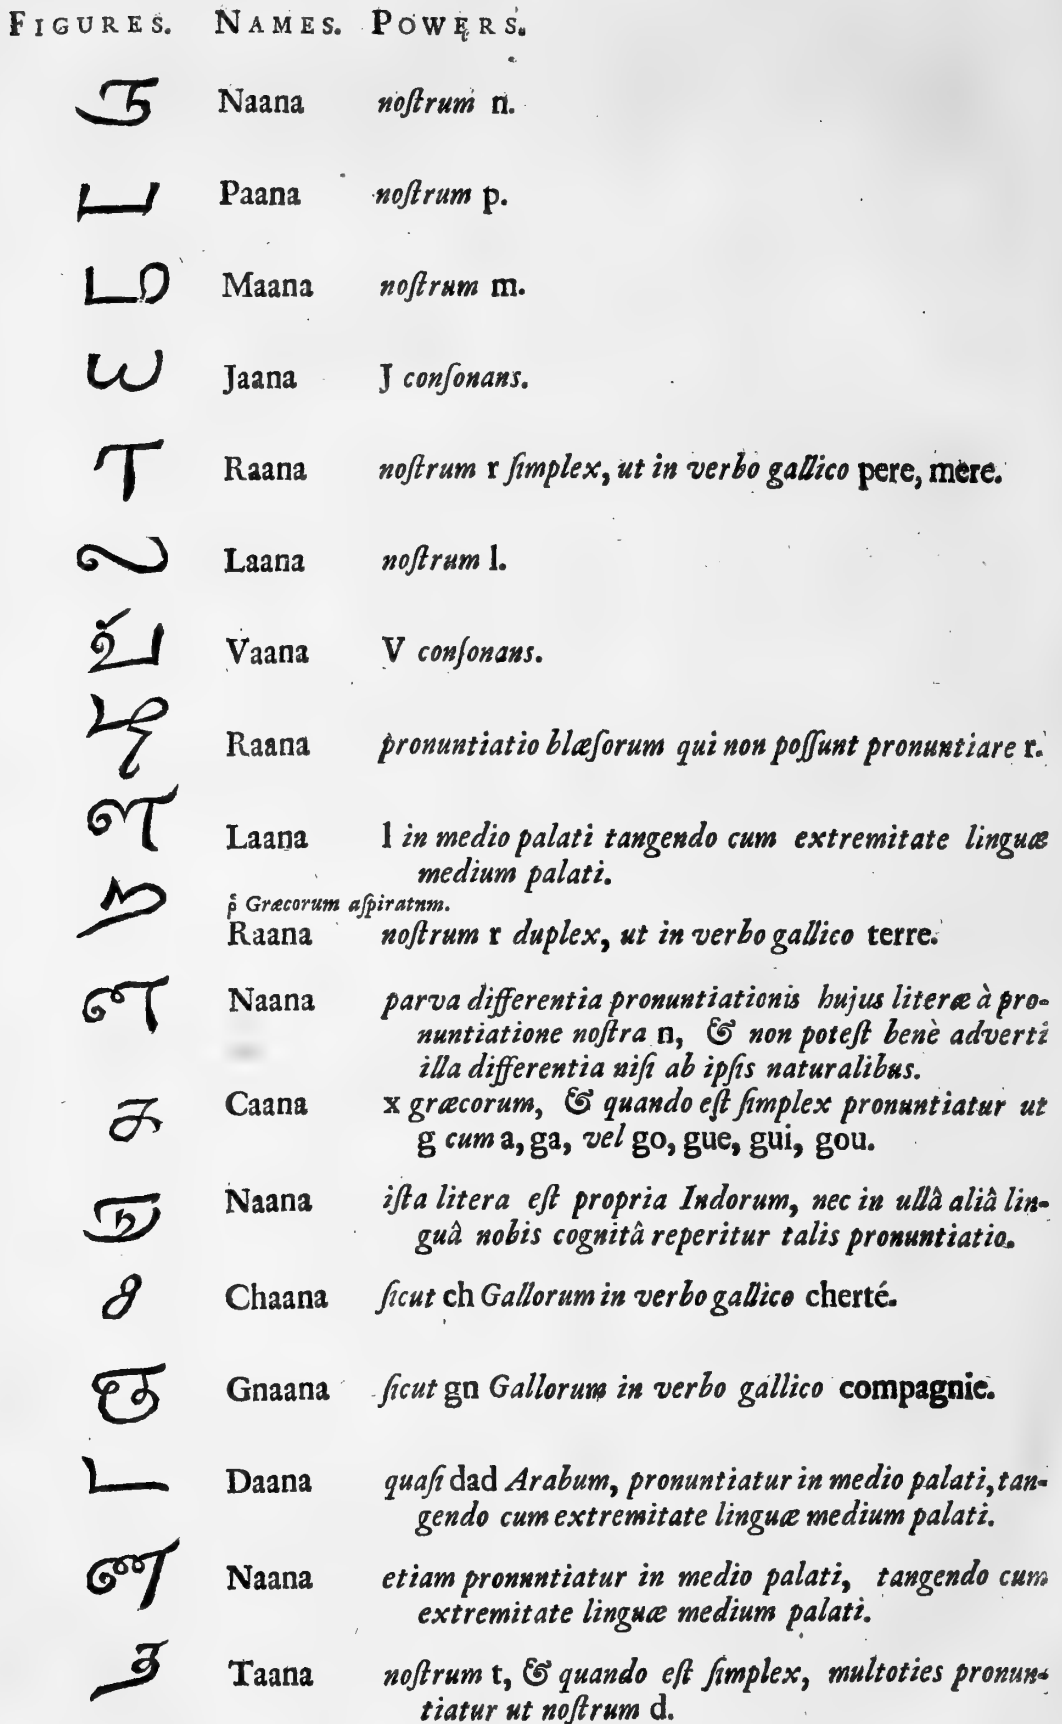 FIGURES. NAMES. POWERS.
ந Naana noſtrum n.
ப Paana noſtrum p.
ம Maana noſtrum m.
ய Jaana J conſonans.
ர Raana noſtrum r ſimplex, ut in verbo gallico pere, mere.
ல Laana noſtrum l.
வ Vaana V conſonans.
ழ Raana pronuntiatio blæſorum qui non poſſunt pronuntiare r.
ள Laana l in medio palati tangendo cum extremitate linguæ
medium palati.
ῥ Græcorum aſpiratum.
ற Raana noſtrum r duplex, ut in verbo gallico terre.
ன Naana parva differentia pronuntiationis hujus literæ à pro-
nuntiatione noſtra n, & non poteſt benè adverti
illa differentia niſi ab ipſis naturalibus.
க Caana x græcorum, & quando eſt ſimplex pronuntiatur ut
g cum a, ga, vel go, gue, gui, gou.
ங Naana iſta litera eſt propria Indorum, nec in ullâ aliâ lin-
guâ nobis cognitâ reperitur talis pronuntiatio.
ச Chaana ſicut ch Gallorum in verbo gallico cherté.
ஞ Gnaana ſicut gn Gallorum in verbo gallico compagnie.
ட Daana quaſi dad Arabum, pronuntiatur in medio palati, tan-
gendo cum extremitate linguæ medium palati.
ண Naana etiam pronuntiatur in medio palati, tangendo cum
extremitate linguæ medium palati.
த Taana noſtrum t, & quando eſt ſimplex, multoties pronun-
tiatur ut noſtrum d.